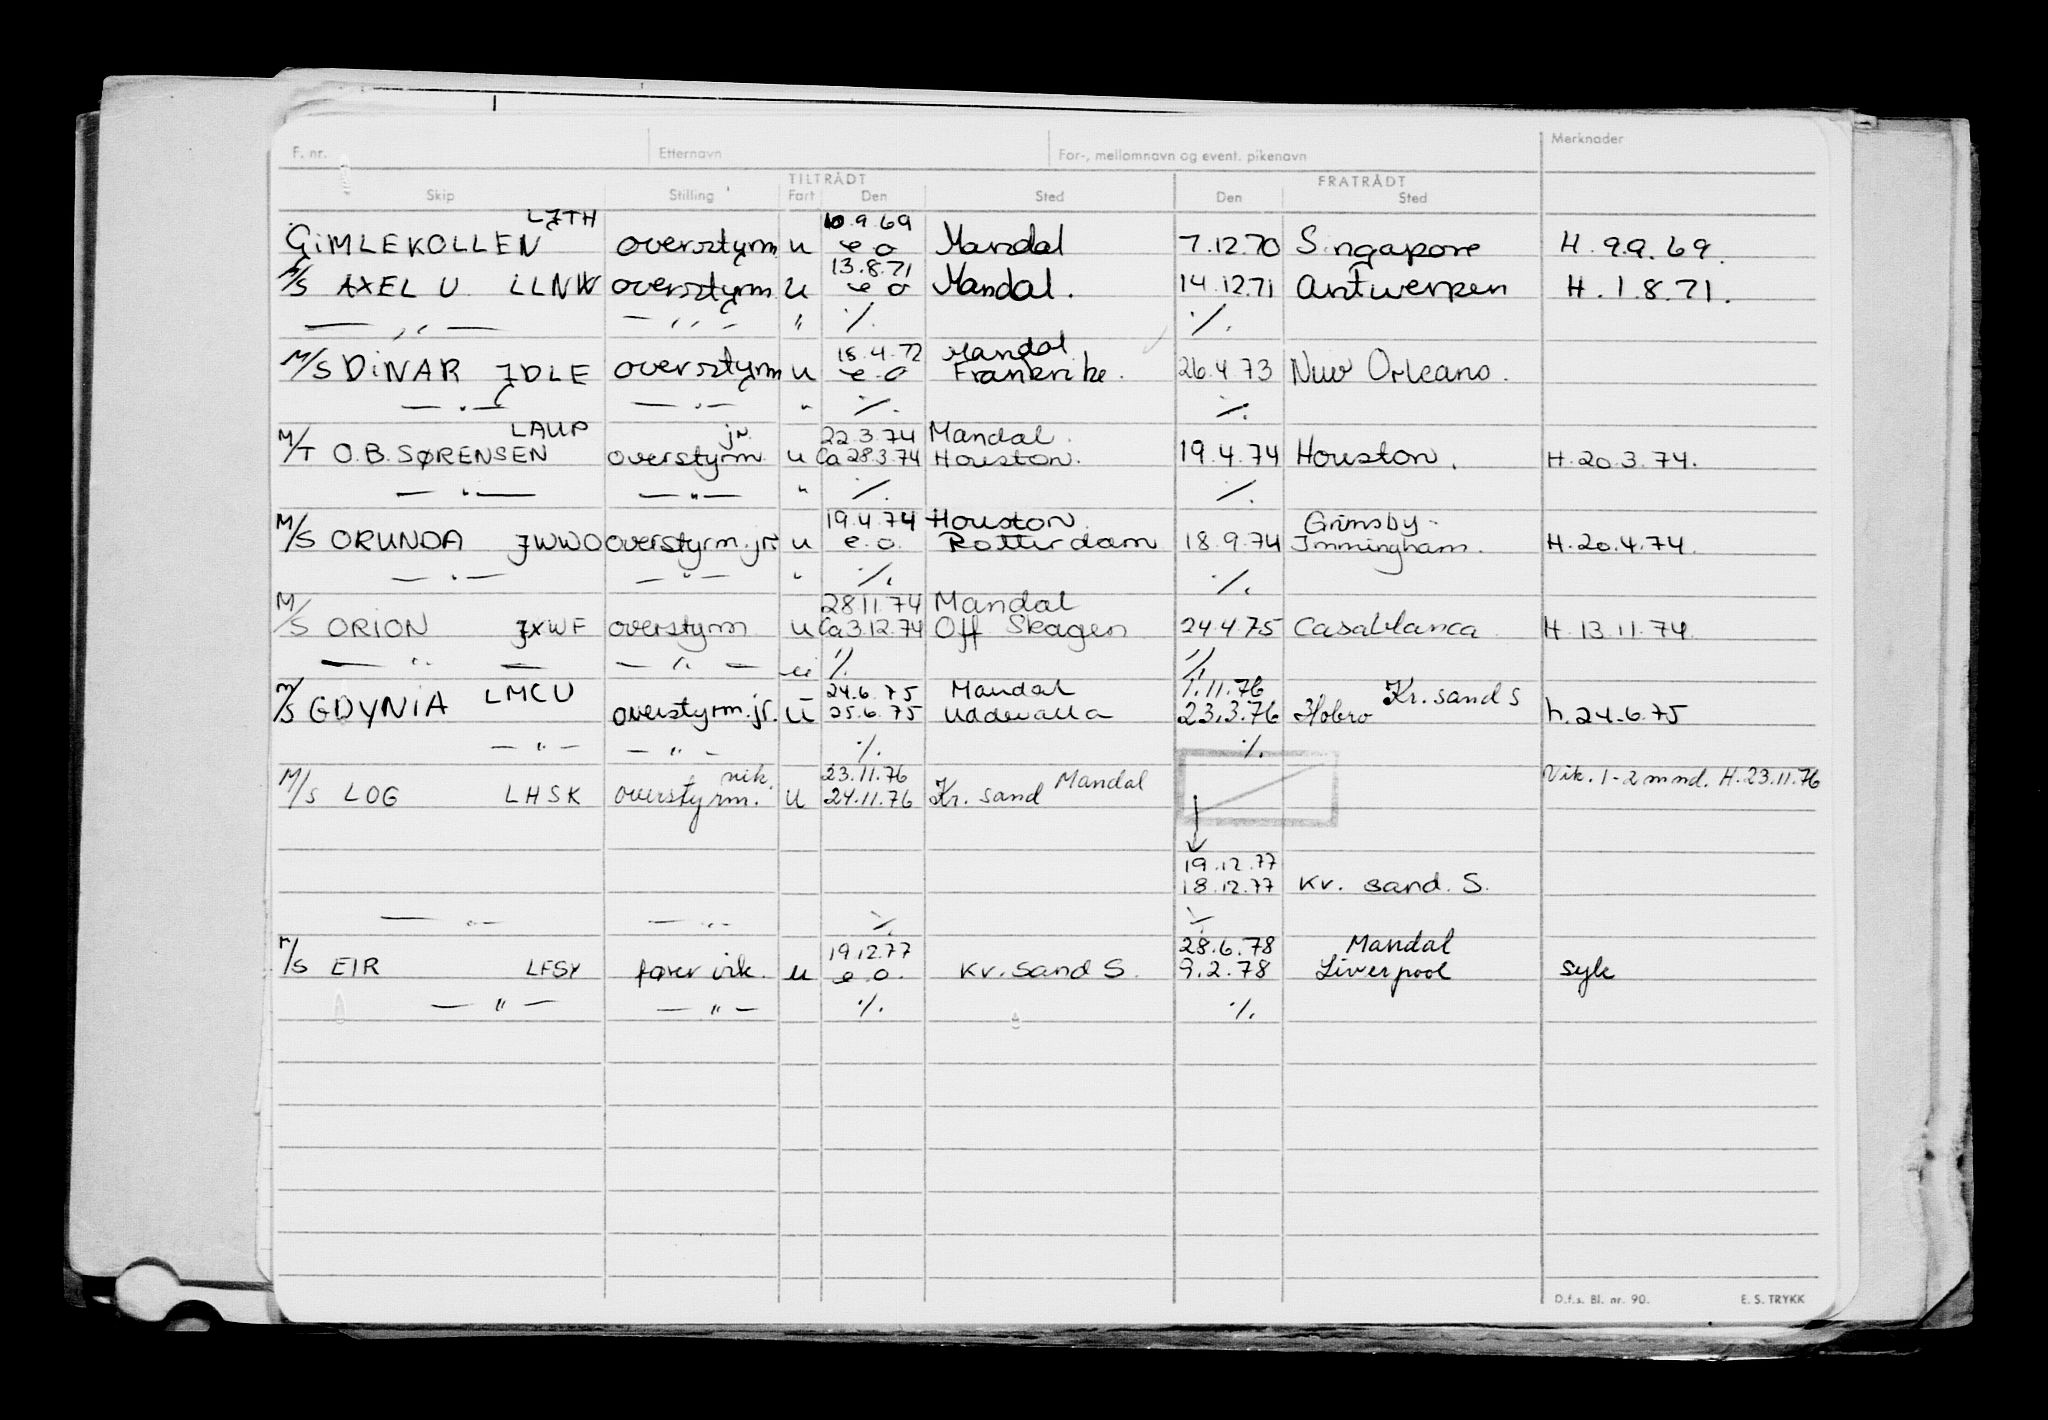 F. nr. Etternavn For-, mellomnavn og event. pikenavn Merknader
TILTRÅDT FRATRÅDT
Skip Stilling Fart Den Sted Den Sted
LJTH 10.9.69
GIMLEKOLLEN overstyrm u e o Mandal 7.12.70 Singapore H. 9.9.69.
13.8.71
M/S AXEL U LLNW overstyrm u e o Mandal. 14.12.71 Antwerpen H. 1.8.71.
— ,, — — ,, — " ./. ./.
15.4.72 Mandal
M/S DINAR JDLE overstyrm u e o Frankrike. 26.4.73 New Orleans.
— " — — " — " ./. ./.
LAUP jr. 22.3.74 Mandal.
M/T O.B. SØRENSEN overstyrm u Ca 28.3.74 Houston. 19.4.74 Houston. H. 20.3.74.
— " — — " — " ./. ./.
19.4.74 Houston Grimsby-
M/S ORUNDA JWWO overstyrm. jr. u e.o. Rotterdam 18.9.74 Immingham. H. 20.4.74.
— " — — " — " ./. ./.
28.11.74 Mandal
M/S ORION JXWF overstyrm u Ca 3.12.74 Off Skagen 24.4.75 Casablanca H. 13.11.74.
— " — — " — u ./. ./.
LMCU 24.6.75 Mandal 1.11.76 Kr. sand S
M/S GDYNIA overstyrm. jr. u 25.6.75 Uddevalla 23.3.76 Hobro h. 24.6.75
— " — — " — ./. ./.
vik. 23.11.76 Mandal Vik. 1-2 mnd. H. 23.11.76
M/S LOG LHSK overstyrm. u 24.11.76 Kr. sand
19.12.77
18.12.77 Kr. sand. S.
— " — — " — ./. ./.
19.12.77 28.6.78 Mandal
M/S EIR LFSY fører vik. u e.o. Kr. sand S. 9.2.78 Liverpool syk
— " — — " — ./. ./.
D.f.s. Bl. nr. 90. E. S. TRYKK